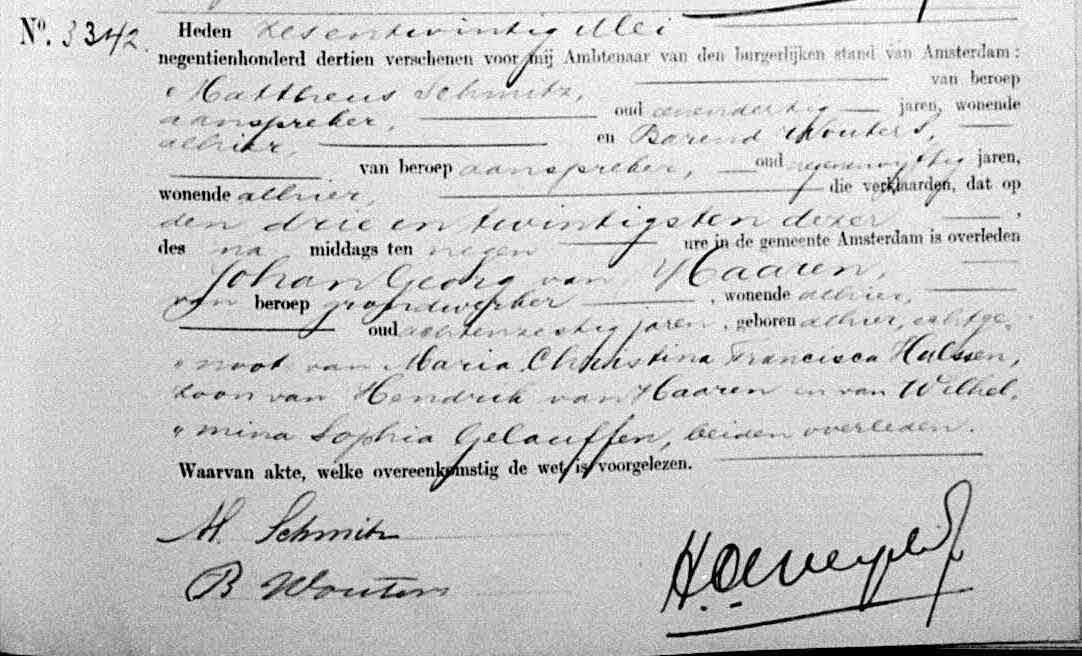 No. 3342. Heden zesentwintig Mei
negentienhonderd dertien verschenen voor mij Ambtenaar van den burgerlijken stand van Amsterdam:
Mattheus Schmitz, van beroep
aanspreker, oud eenendertig jaren, wonende
alhier, en Barend Wouters,
van beroep aanspreker, oud negenenvijftig jaren,
wonende alhier, die verklaarden, dat op
den drie en twintigsten dezer,
des na middags ten negen ure in de gemeente Amsterdam is overleden
Johan Georg van Haaren,
van beroep grondwerker, wonende alhier,
oud achtenzestig jaren, geboren alhier, echtge-
"noot van Maria Christina Francisca Hulssen,
zoon van Hendrik van Haaren en van Wilhel-
"mina Sophia Gelauffen, beiden overleden.
Waarvan akte, welke overeenkomstig de wet is voorgelezen.
M. Schmitz
B Wouters